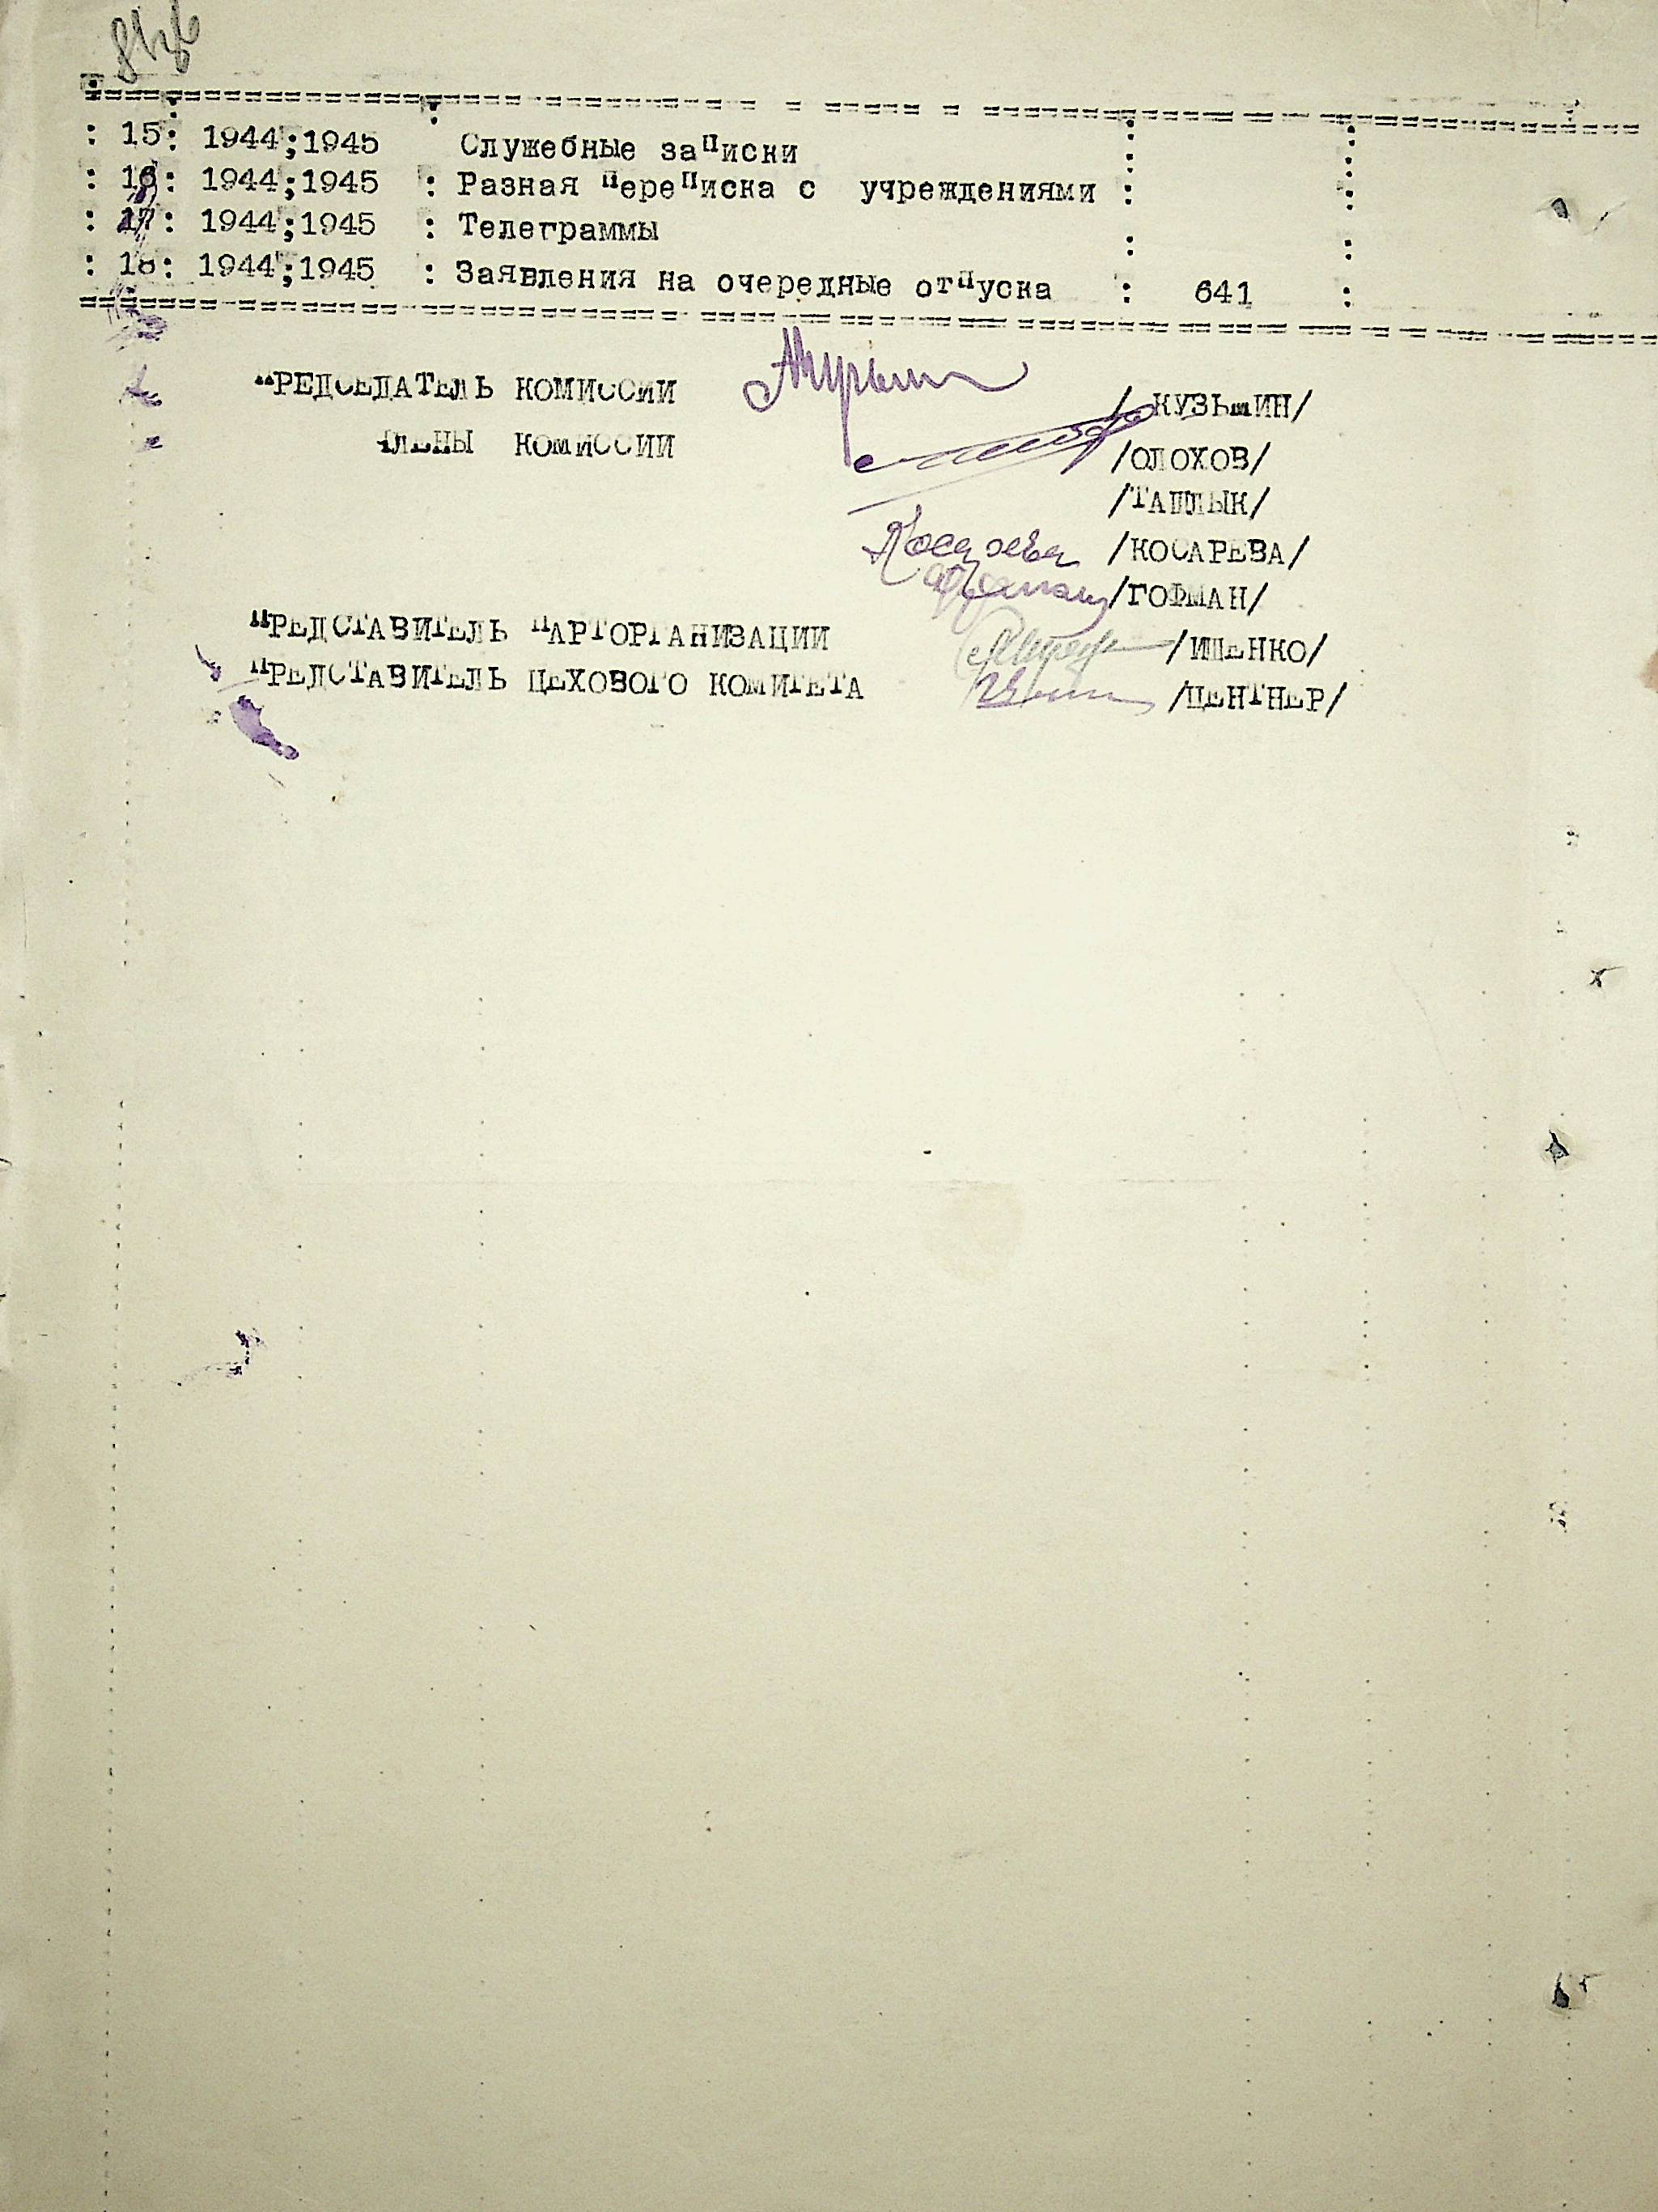 : 15: 1944;1945 Служебные записки :
: 16: 1944;1945 : Разная переписка с учреждениями :
: 17: 1944;1945 : Телеграммы
: 18: 1944;1945 : Заявления на очередные отпуска : 641 :
ПРЕДСЕДАТЕЛЬ КОМИССИИ /КУЗЬМИН/
ЧЛЕНЫ КОМИССИИ /ОЛОХОВ/
/ТАШЛЫК/
Косарева /КОСАРЕВА/
/ГОФМАН/
ПРЕДСТАВИТЕЛЬ ПАРТОРГАНИЗАЦИИ /ИЩЕНКО/
ПРЕДСТАВИТЕЛЬ ЦЕХОВОГО КОМИТЕТА /ЦЕНТНЕР/